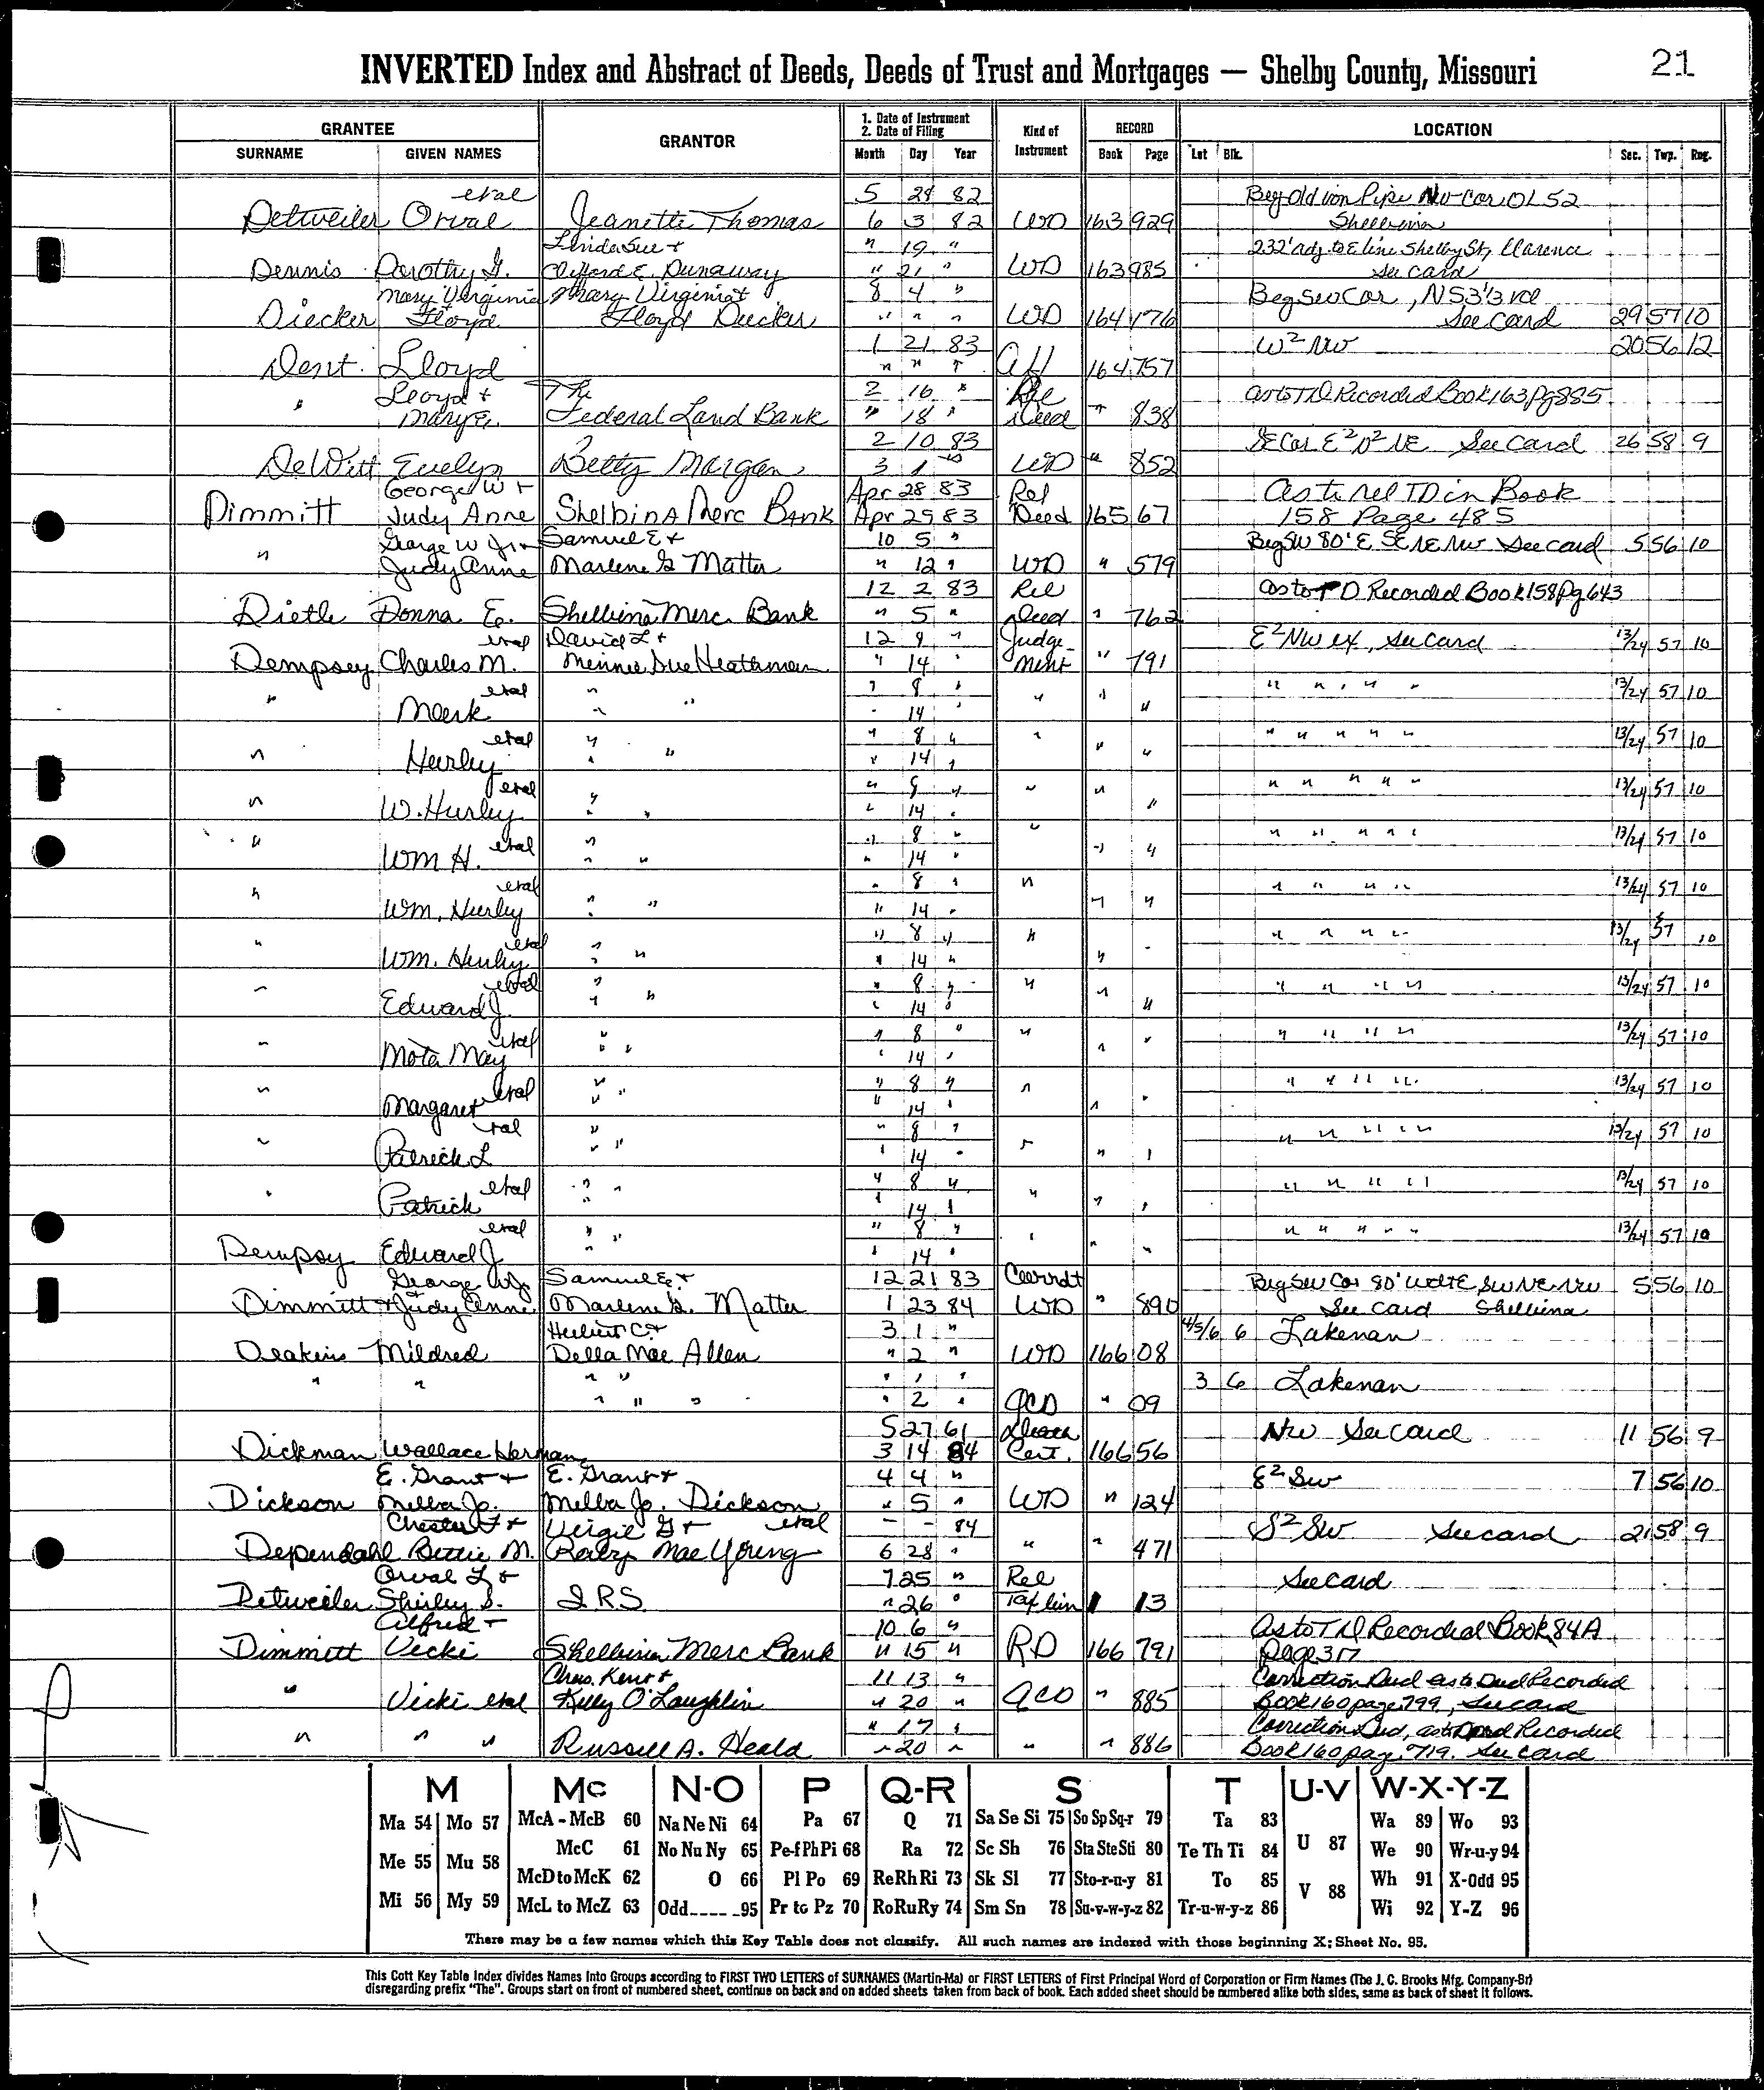 INVERTED Index and Abstract of Deeds, Deeds of Trust and Mortgages — Shelby County, Missouri 21
GRANTEE GRANTOR 1. Date of Instrument 2. Date of Filing Kind of Instrument RECORD LOCATION
SURNAME GIVEN NAMES Month Day Year Book Page Lot Blk. Sec. Twp. Rng.
etal 5 28 82 Beg Old iron Pipe NW Cor OL 52
Detweiler Orval Jeanette Thomas 6 3 82 WD 163 929 Shelbina
Linda Sue + " 19 " 232' adj to E line Shelby St, Clarence
Dennis Dorothy G. Clifford E. Dunaway " 21 " WD 163 985 See Card
Mary Virginia Mary Virginia + 8 4 " Beg SW Cor, N 53 1/3 rd
Diecker Floyd Floyd Diecker " " " WD 164 176 See Card 29 57 10
1 21 83 W2 NW 20 56 12
Dent Lloyd " " " Aff 164 757
Lloyd + The 2 16 " Rel as to TD Recorded Book 163 Pg 885
" Mary E. Federal Land Bank " 18 " Deed " 838
2 10 83 SE Cor E2 D2 NE See Card 26 58 9
DeWitt Evelyn Betty Morgan 3 1 " WD " 852
George W + Apr 28 83 Rel as to rel TD in Book
Dimmitt Judy Anne Shelbina Merc Bank Apr 29 83 Deed 165 67 158 Page 485
George W Jr + Samuel E + 10 5 " Beg SW 80' E SE NE NW See card 5 56 10
" Judy Anne Marlene G Matter " 12 " WD " 579
12 2 83 Rel as to TD Recorded Book 158 Pg 643
Dietle Donna E. Shelbina Merc. Bank " 5 " Deed " 762
etal David L + 12 8 " Judge- E2 NW ex, see Card 13/24 57 10
Dempsey Charles M. Minnie Sue Heathman " 14 " ment " 791
etal " " 8 " " " " " " 13/24 57 10
" Mark " " 14 " " "
etal " " 8 " " " " " " " 13/24 57 10
" Hurley " " 14 " " "
etal " 8 " " " " " " " 13/24 57 10
" W. Hurley " " 14 " " "
etal " " 8 " " " " " " " 13/24 57 10
" Wm H. " " " 14 " " "
etal " 8 " " " " " " 13/24 57 10
" Wm. Hurley " " " 14 " " "
etal " " 8 " " " " " " 13/24 57 10
" Wm. Hurley " " " 14 " " "
etal " " 8 " " " " " " 13/24 57 10
" Edward J. " " " 14 " " "
etal " " 8 " " " " " " 13/24 57 10
" Mota May " " " 14 " " "
etal " " 8 " " " " " " 13/24 57 10
" Margaret " " " 14 " " "
etal " " 8 " " " " " " 13/24 57 10
" Patrick L " " " 14 " " "
etal " " 8 " " " " " " 13/24 57 10
" Patrick " " " 14 " " "
etal " " 8 " " " " " " " 13/24 57 10
Dempsey Edward J " " 14 " " "
George W Jr Samuel E + 12 21 83 Corrdt Beg SW Cor 80' wdt E SW NE NW 5 56 10
Dimmitt + Judy Anne Marlene G. Matter 1 23 84 WD " 890 See Card Shelbina
Herbert C. + 3 1 " 4/5/6 6 Lakenan
Deakins Mildred Della Mae Allen " 2 " WD 166 08
" " " " " 1 " 3 6 Lakenan
" " " " 2 " QCD " 09
5 27 61 Death NW See Card 11 56 9
Dickman Wallace Herman 3 14 84 Cert. 166 56
E. Grant + E. Grant + 4 4 " E2 SW 7 56 10
Dickson Melba Jo. Melba Jo. Dickson " 5 " WD " 124
Chester F + Virgil G + etal - - 84 S2 SW See card 21 58 9
Dependahl Bettie M. Mae Young 6 28 " " " 471
Orval L + 7 25 " Rel See Card
Detweiler Shirley S. I.R.S. " 26 " Tax lien 1 13
Alfred + 10 6 " As to TD Recorded Book 84A
Dimmitt Vicki Shelbina Merc Bank " 15 " RD 166 791 Page 317
Chas. Kent + 11 13 " Correction Deed as to Deed Recorded
" Vicki etal Kelly O'Laughlin " 20 " QCD " 885 Book 160 page 799, See card
" 17 " Correction Deed, as to Deed Recorded
" " " Russell A. Heald " 20 " " " 886 Book 160 page 719. See card
M Mc N-O P Q-R S T U-V W-X-Y-Z
Ma 54 Mo 57 McA - McB 60 Na Ne Ni 64 Pa 67 Q 71 Sa Se Si 75 So Sp Sq-r 79 Ta 83 Wa 89 Wo 93
McC 61 No Nu Ny 65 Pe-f Ph Pi 68 Ra 72 Sc Sh 76 Sta Ste Sti 80 Te Th Ti 84 U 87 We 90 Wr-u-y 94
Me 55 Mu 58 McD to McK 62 O 66 Pl Po 69 Re Rh Ri 73 Sk Sl 77 Sto-r-u-y 81 To 85 V 88 Wh 91 X-Odd 95
Mi 56 My 59 McL to McZ 63 Odd 95 Pr to Pz 70 Ro Ru Ry 74 Sm Sn 78 Su-v-w-y-z 82 Tr-u-w-y-z 86 Wi 92 Y-Z 96
There may be a few names which this Key Table does not classify. All such names are indexed with those beginning X; Sheet No. 95.
This Cott Key Table Index divides Names Into Groups according to FIRST TWO LETTERS of SURNAMES (Martin-Ma) or FIRST LETTERS of First Principal Word of Corporation or Firm Names (The J. C. Brooks Mfg. Company-Br)
disregarding prefix "The". Groups start on front of numbered sheet, continue on back and on added sheets taken from back of book. Each added sheet should be numbered alike both sides, same as back of sheet it follows.